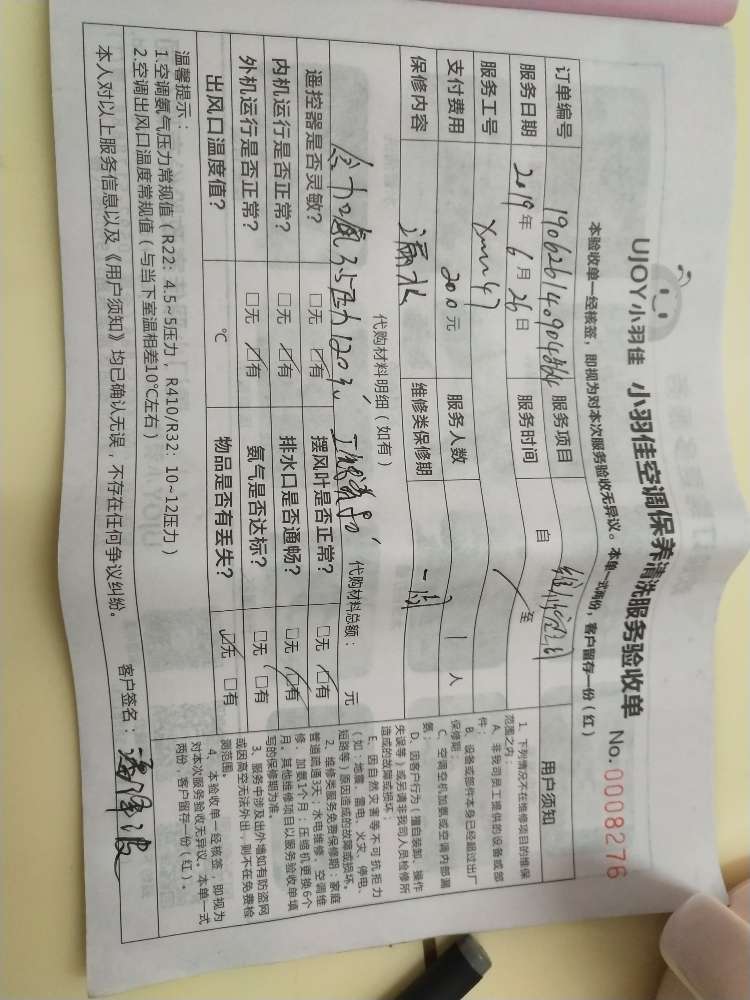 UJOY小羽佳 小羽佳空调保养清洗服务验收单 No.0008276
本验收单一经核签，即视为对本次服务验收无异议。本单一式两份，客户留存一份（红）
订单编号 服务项目
服务日期 2019年6月26日 服务时间 自 至
服务工号 Xmn47
支付费用 200元 服务人数 1人
保修内容 漏水 维修类保修期 一月
代购材料明细（如有）
代购材料总额： 元
遥控器是否灵敏？ □无 ☑有 摆风叶是否正常？ □无 ☑有
内机运行是否正常？ □无 ☑有 排水口是否通畅？ □无 ☑有
外机运行是否正常？ □无 ☑有 氨气是否达标？ □无 □有
出风口温度值？ ℃ 物品是否有丢失？ ☑无 □有
温馨提示：
1.空调氨气压力常规值（R22：4.5~5压力，R410/R32：10~12压力）
2.空调出风口温度常规值（与当下室温相差10℃左右）
本人对以上服务信息以及《用户须知》均已确认无误，不存在任何争议纠纷。
客户签名：
用户须知
1、下列情况不在维修项目的维保
范围之内：
A、非我司员工提供的设备或部
件；
B、设备或部件本身已经超过出厂
保修期；
C、空调杂机加氨或空调内部漏
氨；
D、因客户行为（擅自装卸、操作
失误等）或另请非我司人员检修所
造成的故障或损坏。
E、因自然灾害等不可抗拒力
（如：地震、雷电、火灾、停电、
短路等）原因造成的故障或损坏。
2、维修类服务免费保修期：家庭
管道疏通3天；水电维修、空调维
修、加氨1个月；压缩机更换6个
月。其他维修项目以服务验收单填
写的保修期为准。
3、服务中涉及出外墙如有防盗网
或因高空无法外出，则不在免费检
测范围。
4、本验收单一经核签，即视为
对本次服务验收无异议。本单一式
两份，客户留存一份（红）。